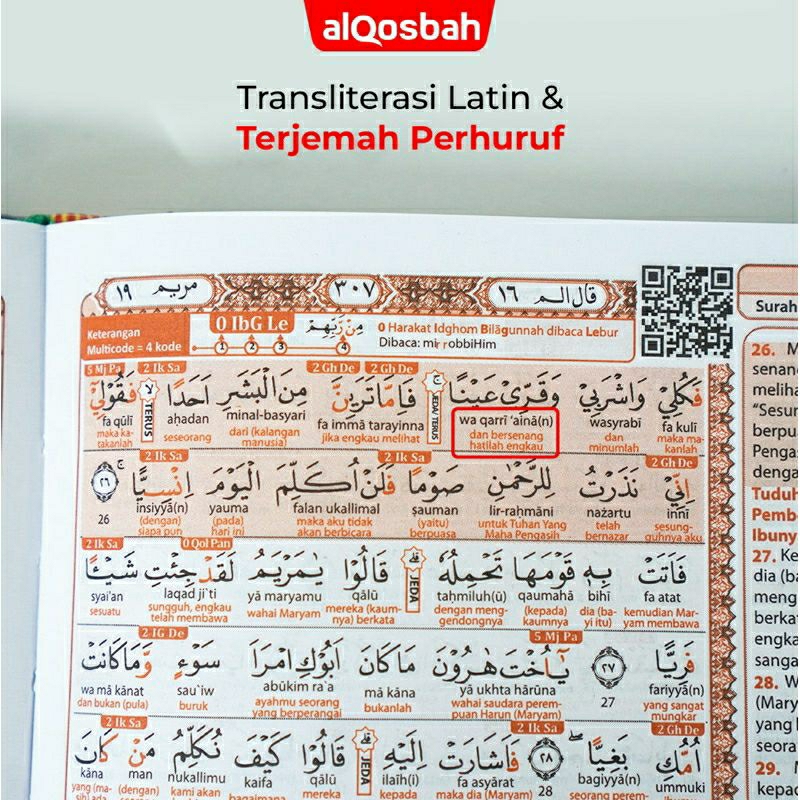 alQosbah
Transliterasi Latin &
Terjemah Perhuruf
مريم ١٩
٣٠٧
قال الم ١٦
Keterangan
Multicode = 4 kode
0 IbG Le
1 2 3 4
مِنْ رَّبِّهِمْ
0 Harakat Idghom Bilāgunnah dibaca Lebur
Dibaca: mir robbiHim
5 Mj Pa 2 Ik Sa 2 Gh De 2 Gh De
فَكُلِيْ وَاشْرَبِيْ وَقَرِّيْ عَيْنًا ۚ فَاِمَّا تَرَيِنَّ مِنَ الْبَشَرِ اَحَدًا ۙ فَقُوْلِيْٓ
JEDA/TERUS TERUS
fa qūlī aḥadan minal-basyari fa immā tarayinna wa qarrī ‘ainā(n) wasyrabī fa kulī
maka ka-
takanlah
seseorang
dari (kalangan
manusia)
jika engkau melihat
dan bersenang
hatilah engkau
dan
minumlah
maka ma-
kanlah
2 Ik Sa 2 Ik Sa 2 Gh De
اِنِّيْ نَذَرْتُ لِلرَّحْمٰنِ صَوْمًا فَلَنْ اُكَلِّمَ الْيَوْمَ اِنْسِيًّا ۚ ٢٦
26 insiyyā(n) yauma falan ukallimal ṣauman lir-raḥmāni nażartu innī
(dengan)
siapa pun
(pada)
hari ini
maka aku tidak
akan berbicara
(yaitu)
berpuasa
untuk Tuhan Yang
Maha Pengasih
telah
bernazar
sesung-
guhnya aku
2 Ik Sa 0 Qol Pan
فَاَتَتْ بِهٖ قَوْمَهَا تَحْمِلُهٗ ۗ قَالُوْا يٰمَرْيَمُ لَقَدْ جِئْتِ شَيْـًٔا
JEDA
syai'an laqad ji'ti yā maryamu qālū taḥmiluh(ū) qaumahā bihī fa atat
sesuatu
sungguh, engkau
telah membawa
wahai Maryam
mereka (kaum-
nya) berkata
dengan meng-
gendongnya
(kepada)
kaumnya
dia (ba-
yi itu)
kemudian Mar-
yam membawa
2 IG De 5 Mj Pa
فَرِيًّا ٢٧ يٰٓاُخْتَ هٰرُوْنَ مَا كَانَ اَبُوْكِ امْرَاَ سَوْءٍ وَّمَا كَانَتْ
wa mā kānat sau'iw abūkim ra'a mā kāna yā ukhta hārūna 27 fariyyā(n)
dan bukan (pula)
buruk
ayahmu seorang
yang berperangai
bukanlah
wahai saudara perem-
puan Harun (Maryam)
yang sangat
mungkar
2 Ik Sa 2 Ik Sa 2 Gh De
اُمُّكِ بَغِيًّا ۖ ٢٨ فَاَشَارَتْ اِلَيْهِ ۗ قَالُوْا كَيْفَ نُكَلِّمُ مَنْ كَانَ
JEDA
kāna man nukallimu kaifa qālū ilaih(i) fa asyārat 28 bagiyyā(n) ummuki
yang (ma-
(dengan)
kami akan
bagaimana
mereka
kepada
maka dia (Maryam)
seorang perem-
ibumu
Surah
26. M
senan
meliha
"Sesun
berpua
Penga
denga
Tuduh
Pemb
Ibuny
27. Ke
dia (ba
meng
berkat
engka
sanga
28. W
(Mary
yang
seora
29. M
kepac